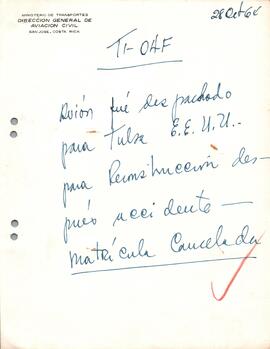 MINISTERIO DE TRANSPORTES
DIRECCION GENERAL DE
AVIACION CIVIL
SAN JOSE, COSTA RICA
28 Oct 64
TI-OAF
Avión fué despachado
para Tulsa E.E.U.U.-
para Reconstrucción des-
pués accidente -
Matrícula Cancelada